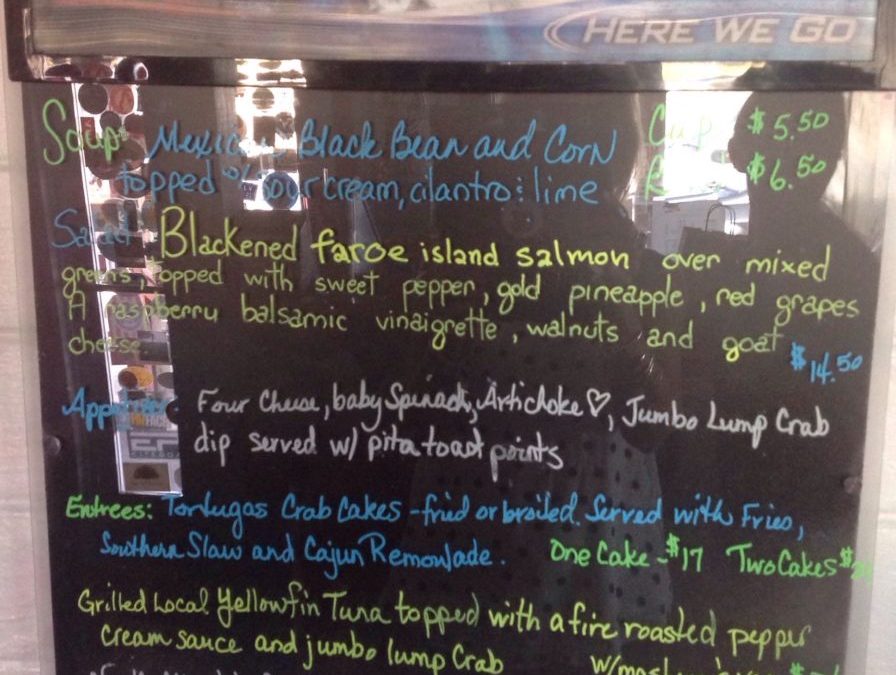 HERE WE GO
Soup Mexican Black Bean and Corn Cup $5.50
topped w/ sour cream, cilantro & lime $6.50
Salad Blackened faroe island salmon over mixed
greens, topped with sweet pepper, gold pineapple, red grapes
A raspberry balsamic vinaigrette, walnuts and goat
cheese. $14.50
Appetizer - Four Cheese, baby Spinach, Artichoke ♡, Jumbo Lump Crab
dip served w/ pita toast points
Entrees: Tortugas Crab Cakes - fried or broiled. Served with Fries,
Southern Slaw and Cajun Remoulade. One Cake - $17 Two Cakes $
Grilled Local Yellowfin Tuna topped with a fire roasted pepper
cream sauce and jumbo lump Crab